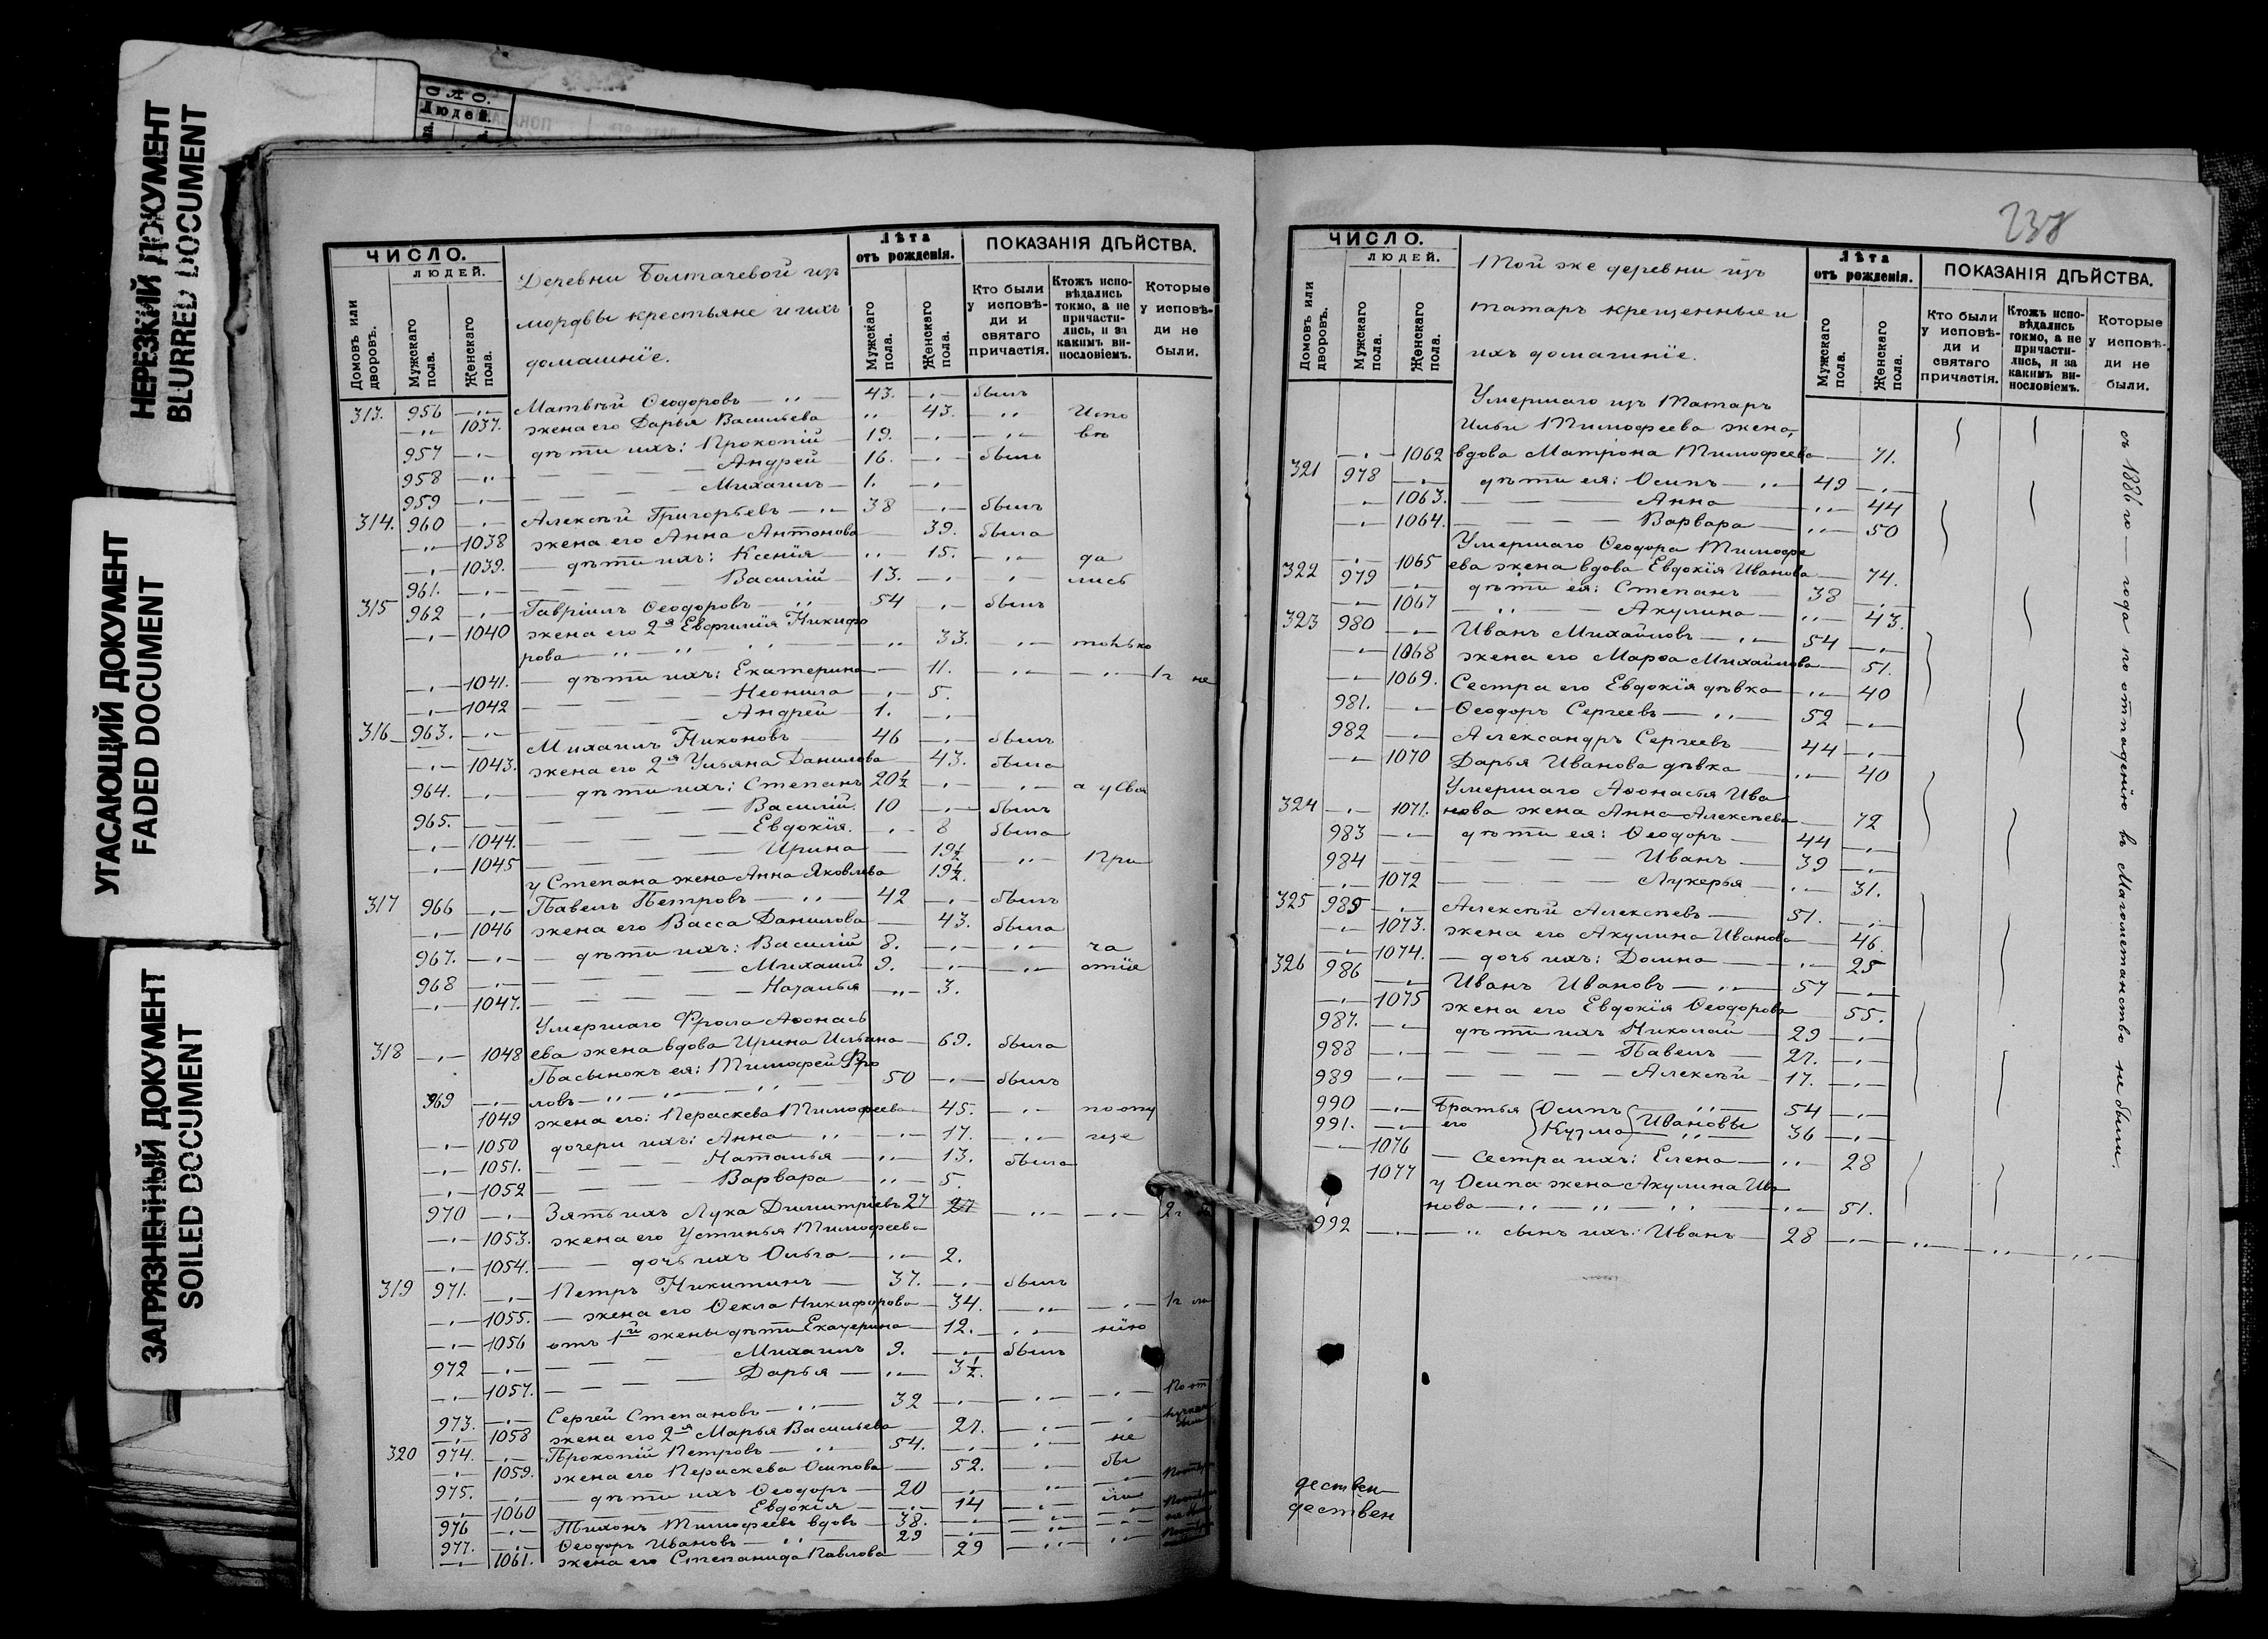 НЕРЕЗКИЙ ДОКУМЕНТ
BLURRED DOCUMENT
УГАСАЮЩИЙ ДОКУМЕНТ
FADED DOCUMENT
ЗАГРЯЗНЕННЫЙ ДОКУМЕНТ
SOILED DOCUMENT
Людей.
ЧИСЛО.
ЛЮДЕЙ.
Домовъ или дворовъ.
Мужскаго пола.
Женскаго пола.
Деревни Болтачевой изъ
мордвы крестьяне и ихъ
домашніе.
Лѣта
отъ рожденія.
Мужскаго пола.
Женскаго пола.
ПОКАЗАНІЯ ДѢЙСТВА.
Кто были у исповѣди и святаго причастія.
Ктожъ исповѣдались токмо, а не причастились, и за какимъ винословіемъ.
Которые у исповѣди не были.
313. 956 —„— Матвѣй Ѳеодоровъ —„— 43. —„— былъ
—„— 1037. жена его Дарья Васильева „ 43. „ Испо
957 —„— дѣти ихъ: Прокопій 19. —„— —„— вѣ
958 —„— Андрей 16. —„— былъ
959 —„— Михаилъ 1. —„—
314. 960 —„— Алексѣй Григорьевъ —„— 38 —„— былъ
—„— 1038 жена его Анна Антонова 39. была
—„— 1039. дѣти ихъ: Ксенія „ 15. —„— да
961. —„— Василій 13. —„— „ лись
315 962 —„— Гавріилъ Ѳеодоровъ „ 54 „ былъ
—„— 1040 жена его 2я Евфимія Никифо
рова —„— „ „ „ 33. „ только
—„— 1041. дѣти ихъ: Екатерина 11. „ „ 1 г не
—„— 1042 Неонила —„— 5.
Андрей 1. —„—
316 963. —„— Михаилъ Никоновъ 46 —„— былъ
—„— 1043. жена его 2я Ульяна Данилова 43. была
964. —„— дѣти ихъ: Степанъ 20½ —„— —„—
965. —„— Василій. 10 —„— былъ
—„— 1044. Евдокія. —„— 8 была
—„— 1045 Ирина 19½ —„— При
у Степана жена Анна Яковлева 19½.
317 966 —„— Павелъ Петровъ —„— 42 —„— былъ
—„— 1046 жена его Васса Данилова 43. была
967. —„— дѣти ихъ: Василій 8. —„— —„— ча
968 —„— Михаилъ 9. —„— —„— стія
—„— 1047. Наталья —„— 3.
Умершаго Фрола Аѳонась
318 —„— 1048 ева жена вдова Ирина Ильина 69. была
Пасынокъ ея: Тимофей Фро
969 —„— ловъ —„— 50 —„— былъ
1049 жена его: Параскева Тимофеева 45. —„— по опу
—„— 1050 дочери ихъ: Анна „ —„— 17. —„— ще
—„— 1051. Наталья —„— 13. была
—„— 1052 Варвара —„— 5.
970 —„— Зять ихъ Лука Димитріевъ 27 27 —„— —„—
—„— 1053. жена его Устинья Тимофеева
—„— 1054. дочь ихъ Ольга —„— 2.
319 971. —„— Петръ Никитинъ 37. —„— былъ
—„— 1055. жена его Ѳекла Никифорова 34. —„— —„—
—„— 1056 отъ 1й жены дѣти Екатерина 12. —„— нію
972 —„— Михаилъ 9. —„— былъ
—„— 1057. Дарья —„— 3½.
973. —„— Сергѣй Степановъ —„— 32 —„— —„— —„—
—„— 1058 жена его 2я Марья Васильева 27. —„— —„—
320 974. —„— Прокопій Петровъ —„— 54. —„— —„— не
—„— 1059. жена его Параскева Осипова 52. —„— бы
975. —„— дѣти ихъ Ѳеодоръ 20 —„— —„— —„—
—„— 1060 Евдокія —„— 14 —„— ли
976 —„— Тихонъ Тимофеевъ вдовъ 38. —„— —„— —„—
977. —„— Ѳеодоръ Ивановъ —„— 29 —„— —„—
—„— 1061. жена его Степанида Павлова 29 —„— —„—
238
ЧИСЛО.
ЛЮДЕЙ.
Домовъ или дворовъ.
Мужскаго пола.
Женскаго пола.
Той же деревни изъ
татаръ крещенные и
ихъ домашніе.
Лѣта
отъ рожденія.
Мужскаго пола.
Женскаго пола.
ПОКАЗАНІЯ ДѢЙСТВА.
Кто были у исповѣди и святаго причастія.
Ктожъ исповѣдались токмо, а не причастились, и за какимъ винословіемъ.
Которые у исповѣди не были.
Умершаго изъ Татаръ
Ильи Тимофеева жена,
—„— 1062 вдова Матрона Тимофеева 71.
321 978 —„— дѣти ея: Осипъ —„— 49 —„—
—„— 1063. Анна —„— 44
—„— 1064. Варвара —„— 50
Умершаго Ѳеодора Тимофе
—„— 1065 ева жена вдова Евдокія Иванова 74.
322 979 —„— дѣти ея: Степанъ 38 —„—
—„— 1067 —„— Акулина —„— 43.
323 980 —„— Иванъ Михайловъ —„— 54 —„—
—„— 1068 жена его Марѳа Михайлова 51.
—„— 1069. Сестра его Евдокія дѣвка —„— 40
981. —„— Ѳеодоръ Сергѣевъ —„— 52 —„—
982 —„— Александръ Сергѣевъ 44 —„—
—„— 1070 Дарья Иванова дѣвка —„— 40
Умершаго Аѳонасья Ива
324 —„— 1071. нова жена Анна Алексѣева 72
983 —„— дѣти ея: Ѳеодоръ 44 —„—
984 — Иванъ 39 —„—
—„— 1072 Лукерья —„— 31.
325 985 —„— Алексѣй Алексѣевъ 51. —„—
—„— 1073. жена его Акулина Иванова 46.
—„— 1074. дочь ихъ: Домна —„— 25
326 986 —„— Иванъ Ивановъ —„— 57 —„—
—„— 1075 жена его Евдокія Ѳеодорова 55.
987. —„— дѣти ихъ Николай 29 —„—
988 —„— Павелъ 27. —„—
989 —„— Алексѣй 17. —„—
990 —„— Братья Осипъ —„— 54 —„—
991. —„— его Кузма Ивановы —„— 36 —„—
—„— 1076 Сестра ихъ: Елена —„— 28
1077 у Осипа жена Акулина Ива
нова —„— „ —„— „ —„— 51.
992 —„— „ сынъ ихъ: Иванъ 28 —„— —„— —„— —„—
съ 1886 го — года по отпаденію въ Магометанство не были.
дествен
дествен